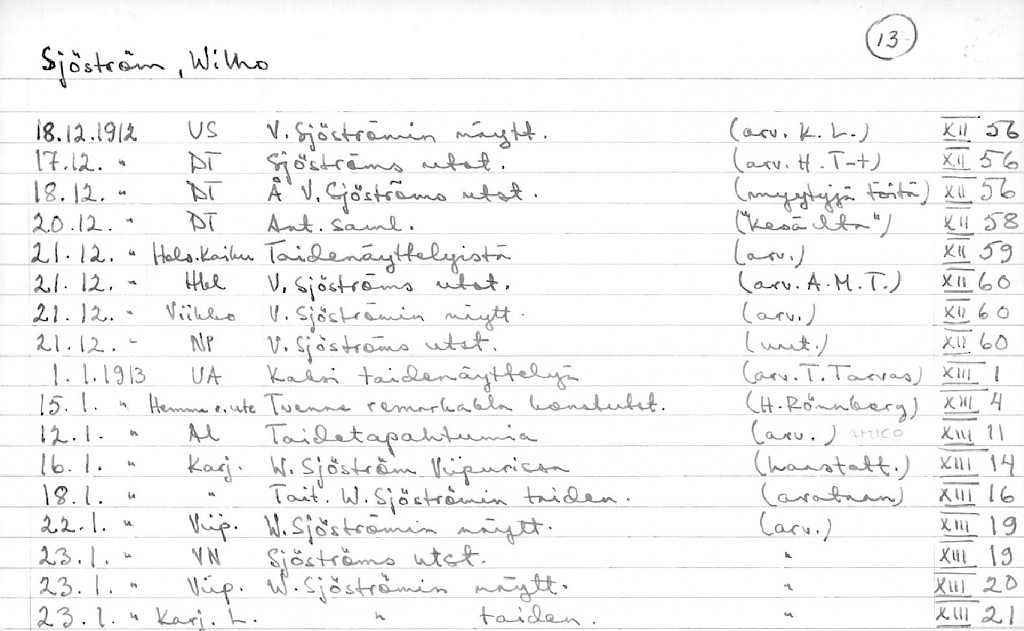 13
Sjöström, Wilho
18.12.1912 US V. Sjöströmin näytt. (arv. K. L.) XII 56
17.12. " DT Sjöströms utst. (arv. H. T-t) XII 56
18.12. " DT Å V. Sjöströms utst. (myytyjä töitä) XII 56
20.12. " DT Ant. saml. ("Kesäilta") XII 58
21.12. " Hels. Kaiku Taidenäyttelyistä (arv.) XII 59
21.12. " Hbl V. Sjöströms utst. (arv. A.M.T.) XII 60
21.12. " Viikko V. Sjöströmin näytt. (arv.) XII 60
21.12. " NP V. Sjöströms utst. (uut.) XII 60
1.1.1913 UA Kaksi taidenäyttelyä (arv. T. Tarvas) XIII 1
15.1. " Hemma o. ute Tvenne remarkabla konstutst. (H. Rönnberg) XIII 4
12.1. " AL Taidetapahtumia (arv.) AMICO XIII 11
16.1. " Karj. W. Sjöström Viipurissa (haastatt.) XIII 14
18.1. " " Tait. W. Sjöströmin taiden. (avataan) XIII 16
22.1. " Viip. W. Sjöströmin näytt. (arv.) XIII 19
23.1. " VN Sjöströms utst. " XIII 19
23.1. " Viip. W. Sjöströmin näytt. " XIII 20
23.1. " Karj. L. " taiden. " XIII 21